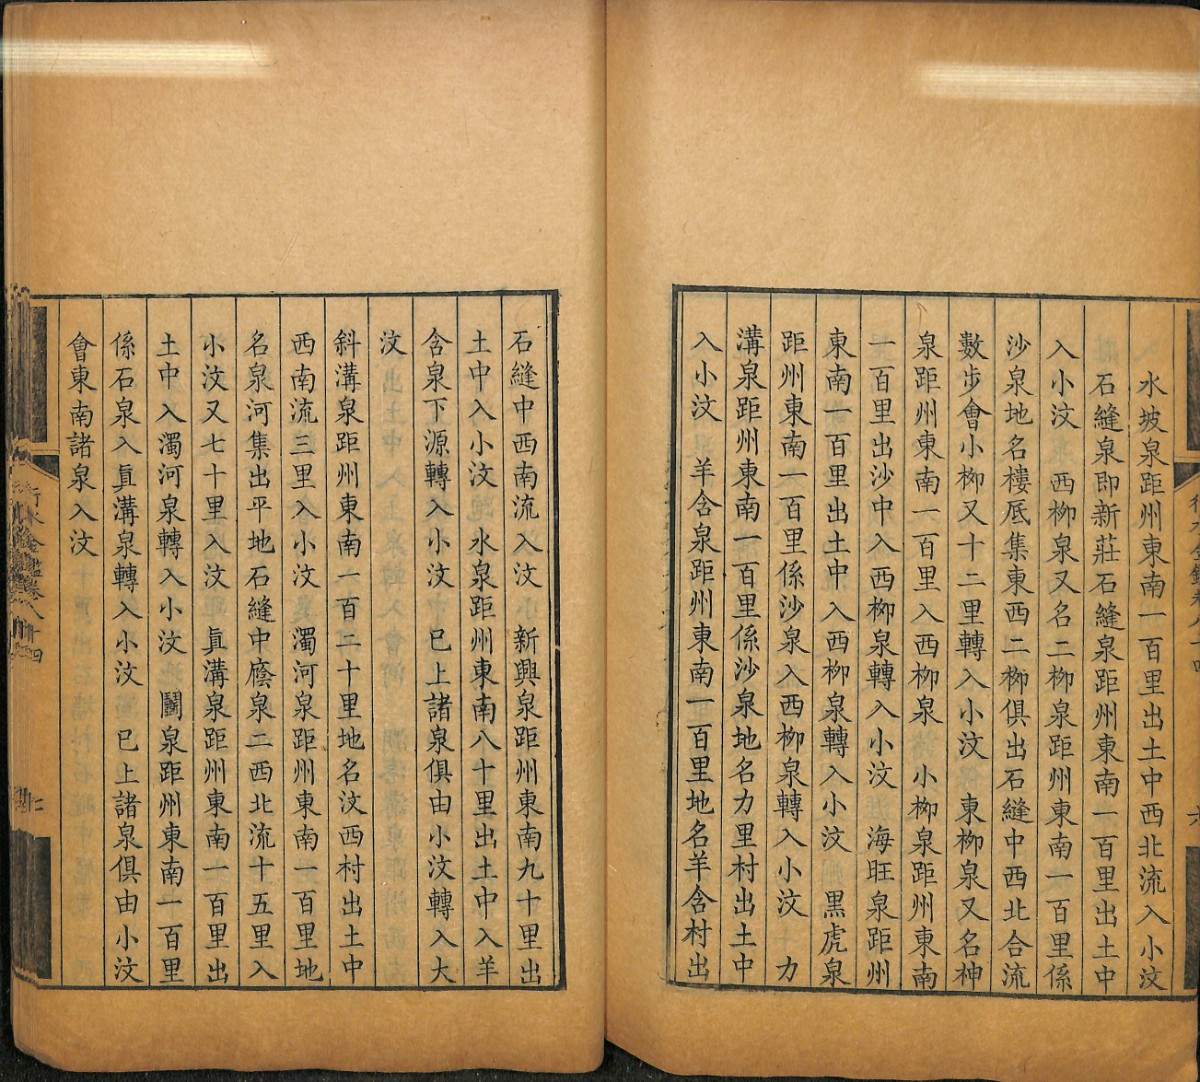 水坡泉距州東南一百里出土中西北流入小汶
石縫泉即新莊石縫泉距州東南一百里出土中
入小汶　西栁泉又名二栁泉距州東南一百里係
沙泉地名樓㡳集東西二栁俱出石縫中西北合流
數步會小栁又十二里轉入小汶　東栁泉又名神
泉距州東南一百里入西栁泉　小栁泉距州東南
一百里出沙中入西栁泉轉入小汶　海旺泉距州
東南一百里出土中入西栁泉轉入小汶　黑虎泉
距州東南一百里係沙泉入西栁泉轉入小汶　力
溝泉距州東南一百里係沙泉地名力里村出土中
入小汶　羊舍泉距州東南一百里地名羊舍村出
石縫中西南流入汶　新興泉距州東南九十里出
土中入小汶　水泉距州東南八十里出土中入羊
舍泉下源轉入小汶　已上諸泉俱由小汶轉入大
汶
斜溝泉距州東南一百二十里地名汶西村出土中
西南流三里入小汶　濁河泉距州東南一百里地
名泉河集出平地石縫中廕泉二西北流十五里入
小汶又七十里入汶　眞溝泉距州東南一百里出
土中入濁河泉轉入小汶　鬬泉距州東南一百里
係石泉入眞溝泉轉入小汶　已上諸泉俱由小汶
會東南諸泉入汶
行水金鑑卷八十四